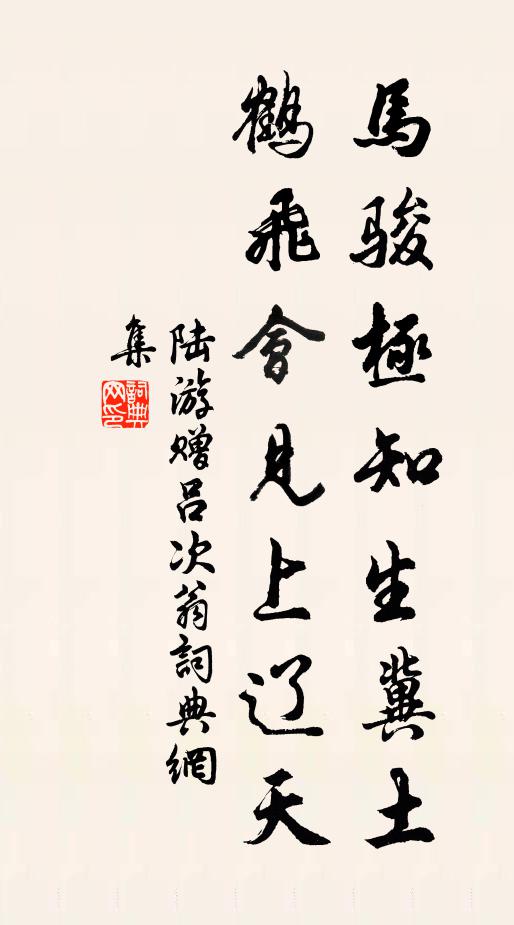 馬駿極知生冀土
鶴飛會見上辽天
陆游赠吕次翁詞典網
集
詞典
网印